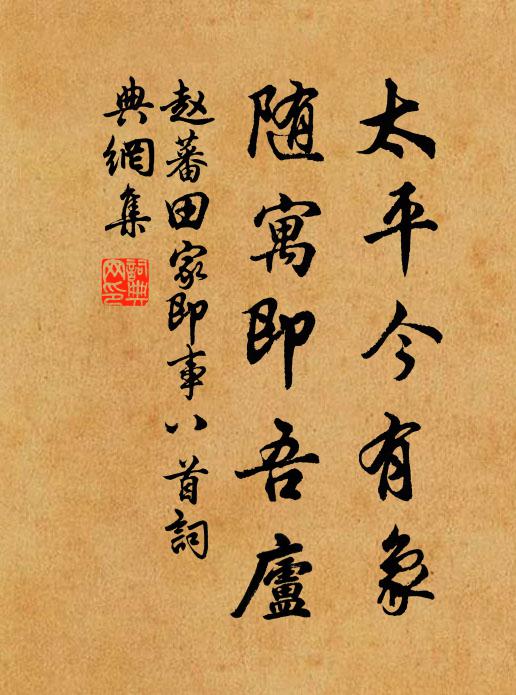 太平今有象
随寓即吾廬
赵蕃田家即事八首詞
典網集
詞典网印